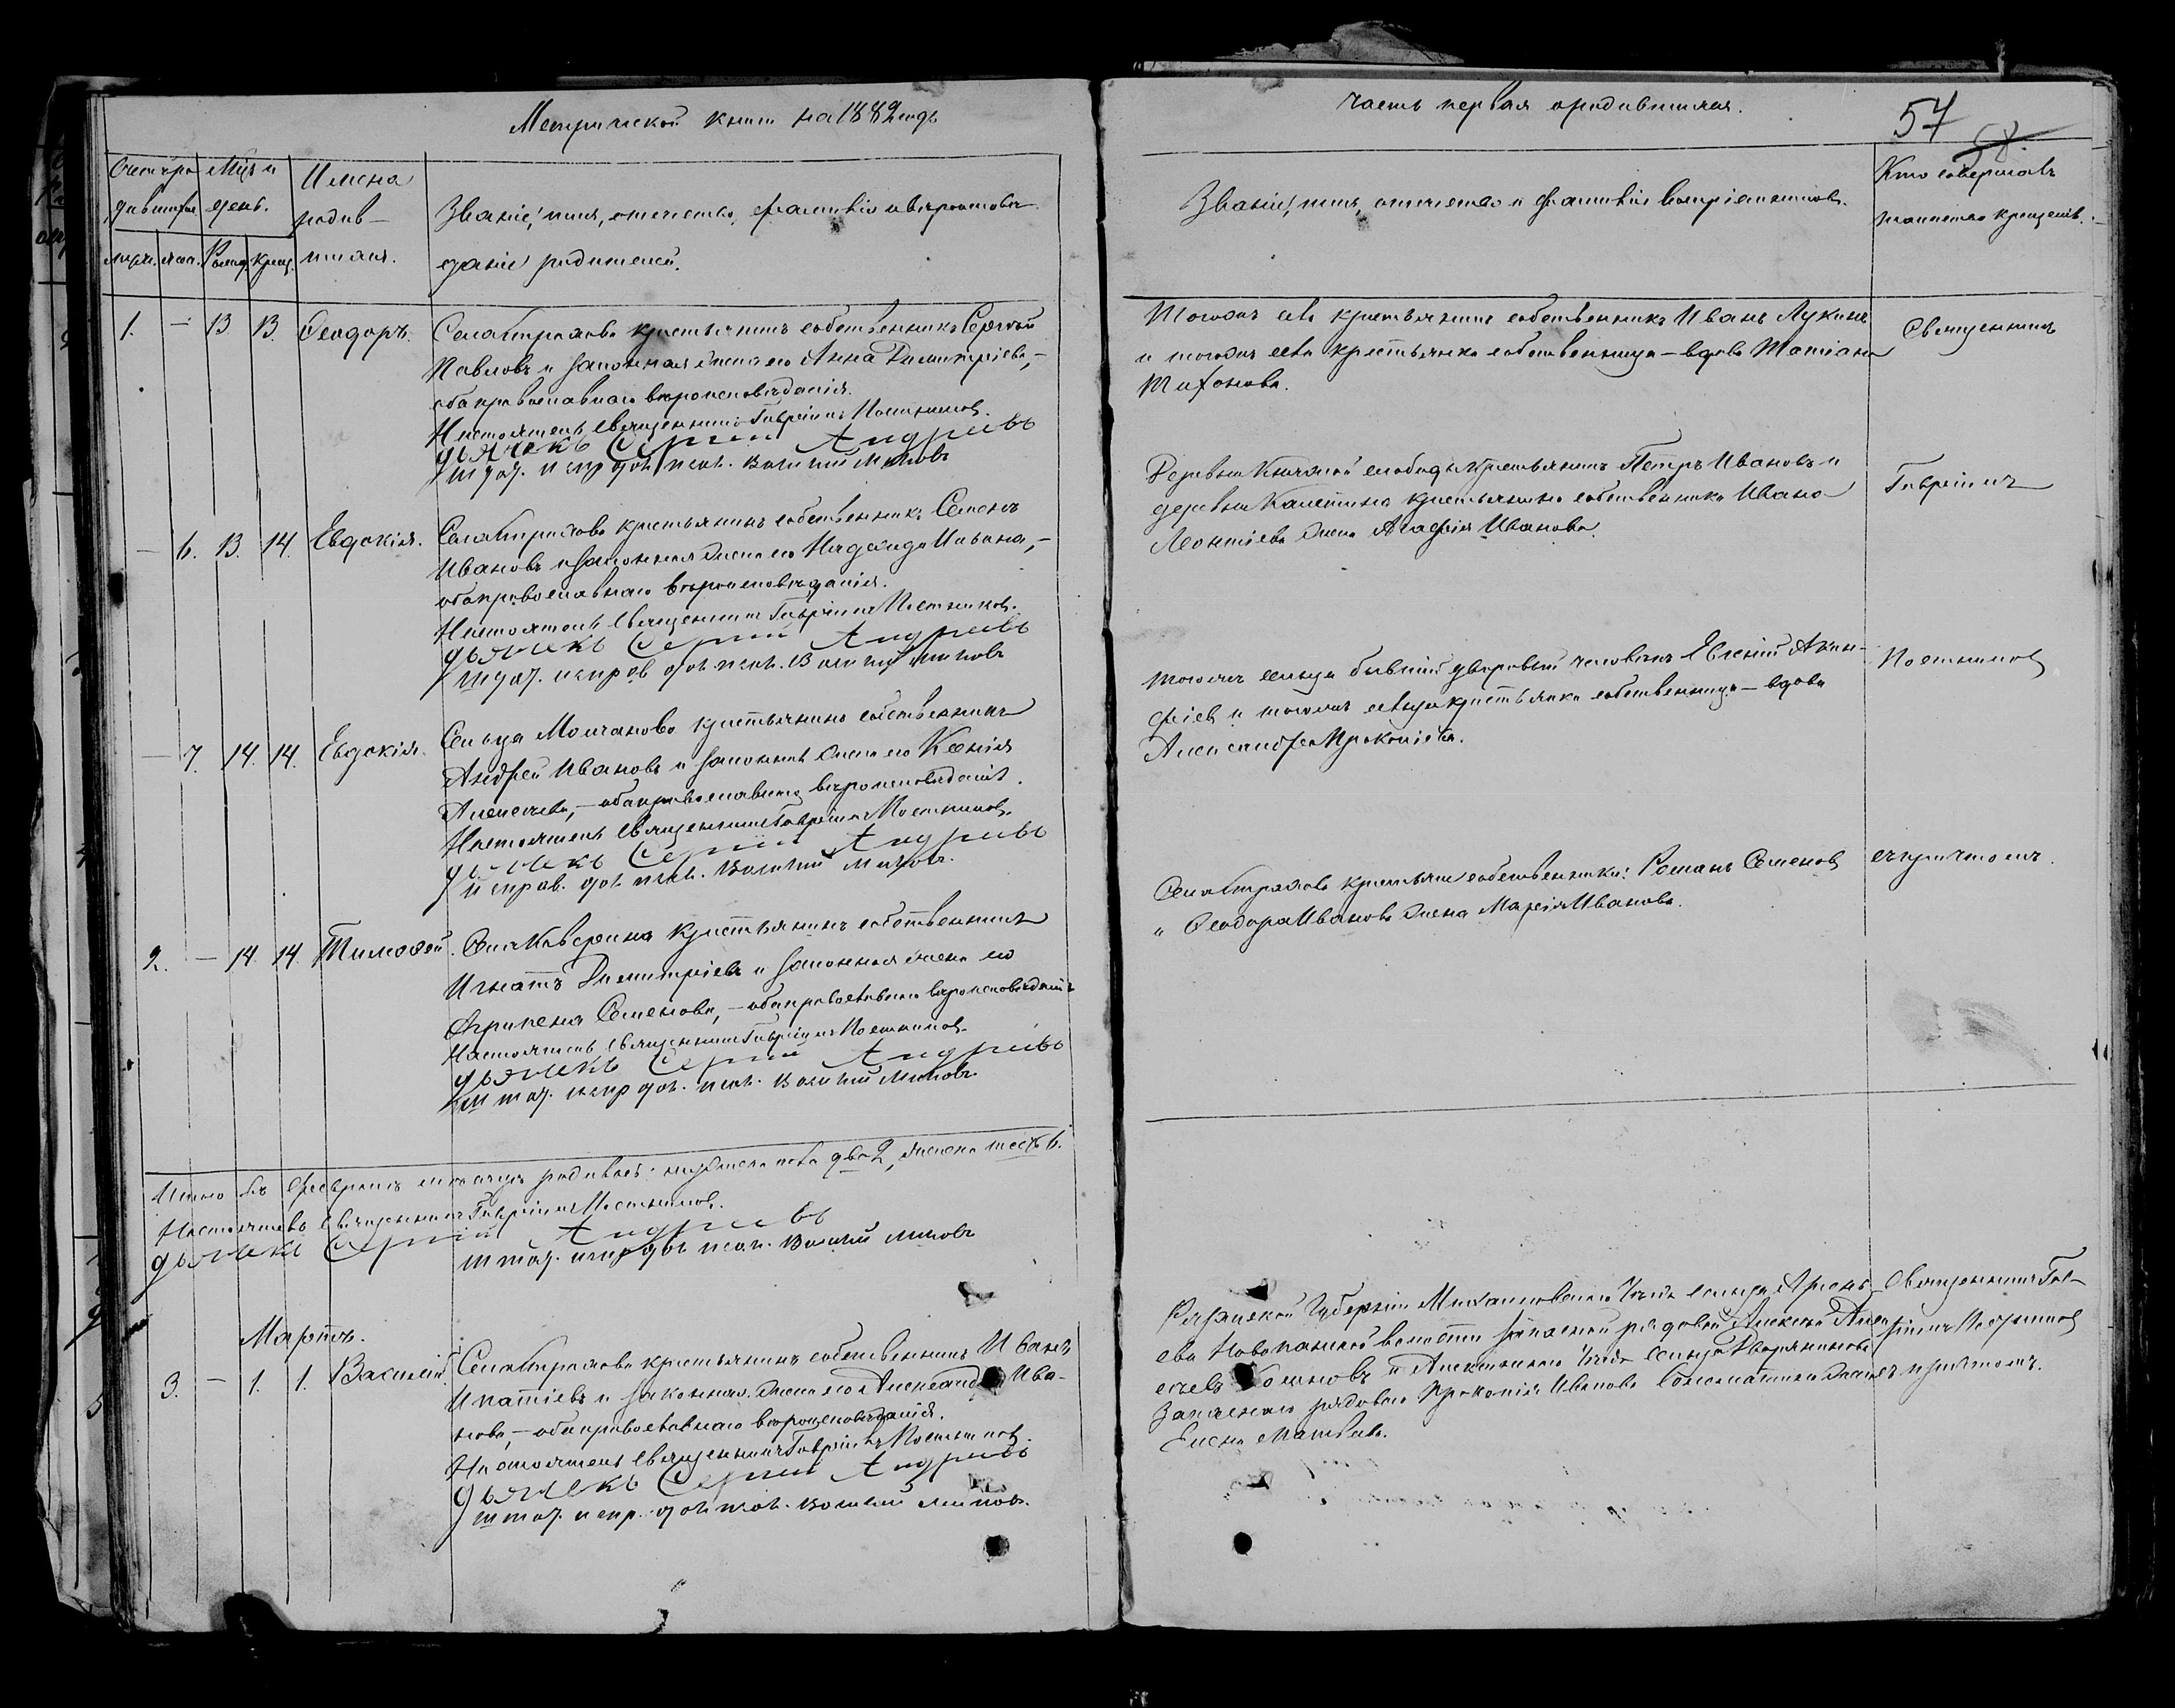 Метрической книги на 1882 годъ
часть первая о родившихся.
57
58.
Счетъ ро
дившихся
Мцъ и
день.
Имена
родив-
шихся.
муж. жен. Рожд. Крещ.
Званіе, имя, отчество, фамилія и вѣроиспове-
даніе родителей.
Званіе, имя, отчество и фамилія воспріемниковъ.
Кто совершалъ
таинство крещенія.
1. — 13 13. Ѳеодоръ.
Села Страхова крестьянинъ собственникъ Сергѣй
Павловъ и законная жена его Анна Димитріева, —
оба православнаго вѣроисповѣданія.
Настоятель священникъ Гавріилъ Постниковъ.
дьячекъ Сергій Андріевъ
штат. испр. дол. псал. Василій
Тогожъ села крестьянинъ собственникъ Иванъ Лукинъ
и тогожъ села крестьянка собственница — вдова Татіана
Тихонова.
Священникъ
— 6. 13. 14. Евдокія.
Села Страхова крестьянинъ собственникъ Семенъ
Ивановъ и законная жена его Надежда —
оба православнаго вѣроисповѣданія.
Настоятель священникъ Гавріилъ Постниковъ.
дьячекъ Сергій Андріевъ
штат. исправ. дол. псал. Василій
Деревни слободы крестьянинъ Петръ Ивановъ и
деревни крестьянина собственника Ивана
Леонтіева жена Агафія Иванова.
Гавріилъ
— 7. 14. 14. Евдокія.
Сельца Молчанова крестьянинъ собственникъ
Андрей Ивановъ и законная жена его Ксенія
Алексѣева, — оба православнаго вѣроисповѣданія.
Настоятель священникъ Гавріилъ Постниковъ.
дьячекъ Сергій Андріевъ
исправ. дол. псал. Василій
тогожъ сельца бывшій дворовый человѣкъ Евгеній Акин-
фіевъ и тогожъ сельца крестьянка собственница — вдова
Александра Прокопіева.
Постниковъ
2. — 14. 14. Тимоѳей.
Села Каверина крестьянинъ собственникъ
Игнатъ Димитріевъ и законная жена его
Агрипена Семенова, — оба православнаго вѣроисповѣданія
Настоятель священникъ Гавріилъ Постниковъ.
дьячекъ Сергій Андріевъ
штат. испр. дол. псал. Василій
Села Страхова крестьяне собственники: Романъ Семеновъ
и Ѳеодора Иванова жена Марѳа Иванова.
съ причтомъ.
Итого въ Февралѣ мѣсяцѣ родилось: мужеска пола два 2, женска шесть 6.
Настоятель священникъ Гавріилъ Постниковъ.
дьячекъ Сергій Андріевъ
штат. испр. дол. псал. Василій
Мартъ.
3. — 1. 1. Василій
Села Страхова крестьянинъ собственникъ Иванъ
Ипатіевъ и законная жена его Александра Ива-
нова, — оба православнаго вѣроисповѣданія.
Настоятель священникъ Гавріилъ Постниковъ.
дьячекъ Сергій Андріевъ
штат. испр. дол. псал. Василій
Рязанской Губерніи Михайловскаго уѣзда сельца
волости запасной рядовой Алексѣй Алек-
сѣевъ и Алексинскаго уѣзда сельца
Запаснаго рядоваго Прокопія Иванова жена
Елена Матвѣева.
Священникъ Гав-
ріилъ Постниковъ
съ причтомъ.